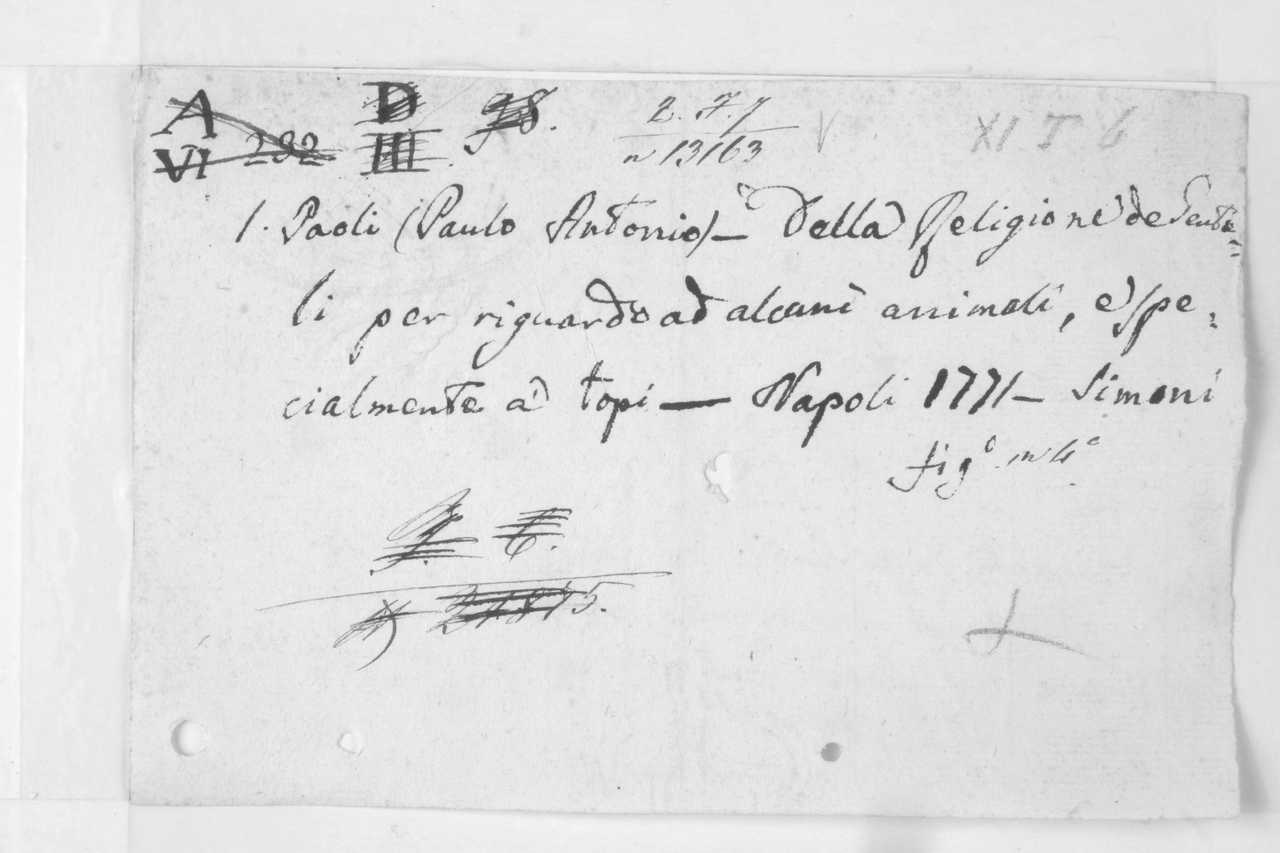 A D 98. 2. 7. 7 V XI I 6
VI 282 III n 13163
1. Paoli (Paulo Antonio) – Della Religione de Genti=
li per riguardo ad alcuni animali, e spe=
cialmente a' topi — Napoli 1771 – Simoni
figº. in 4º